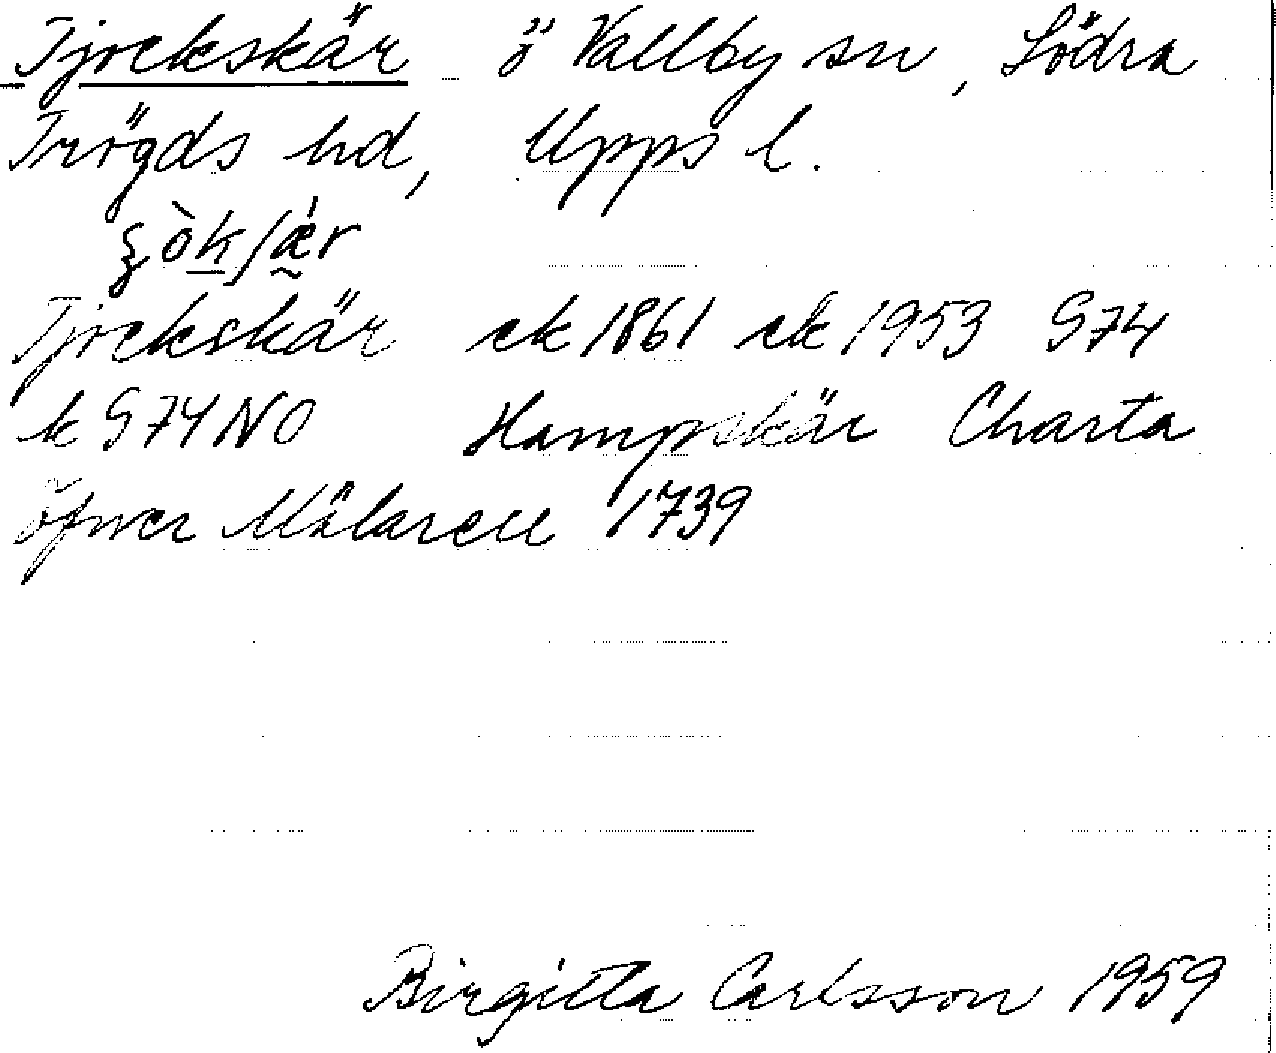 Tjockskär ö Vallby sn, Södra
Trögds hd, Upps l.
Tjockskär ek 1861 ek 1953 974
k 974 NO Hampskär Charta
öfwer Mälaren 1739
Birgitta Carlsson 1959